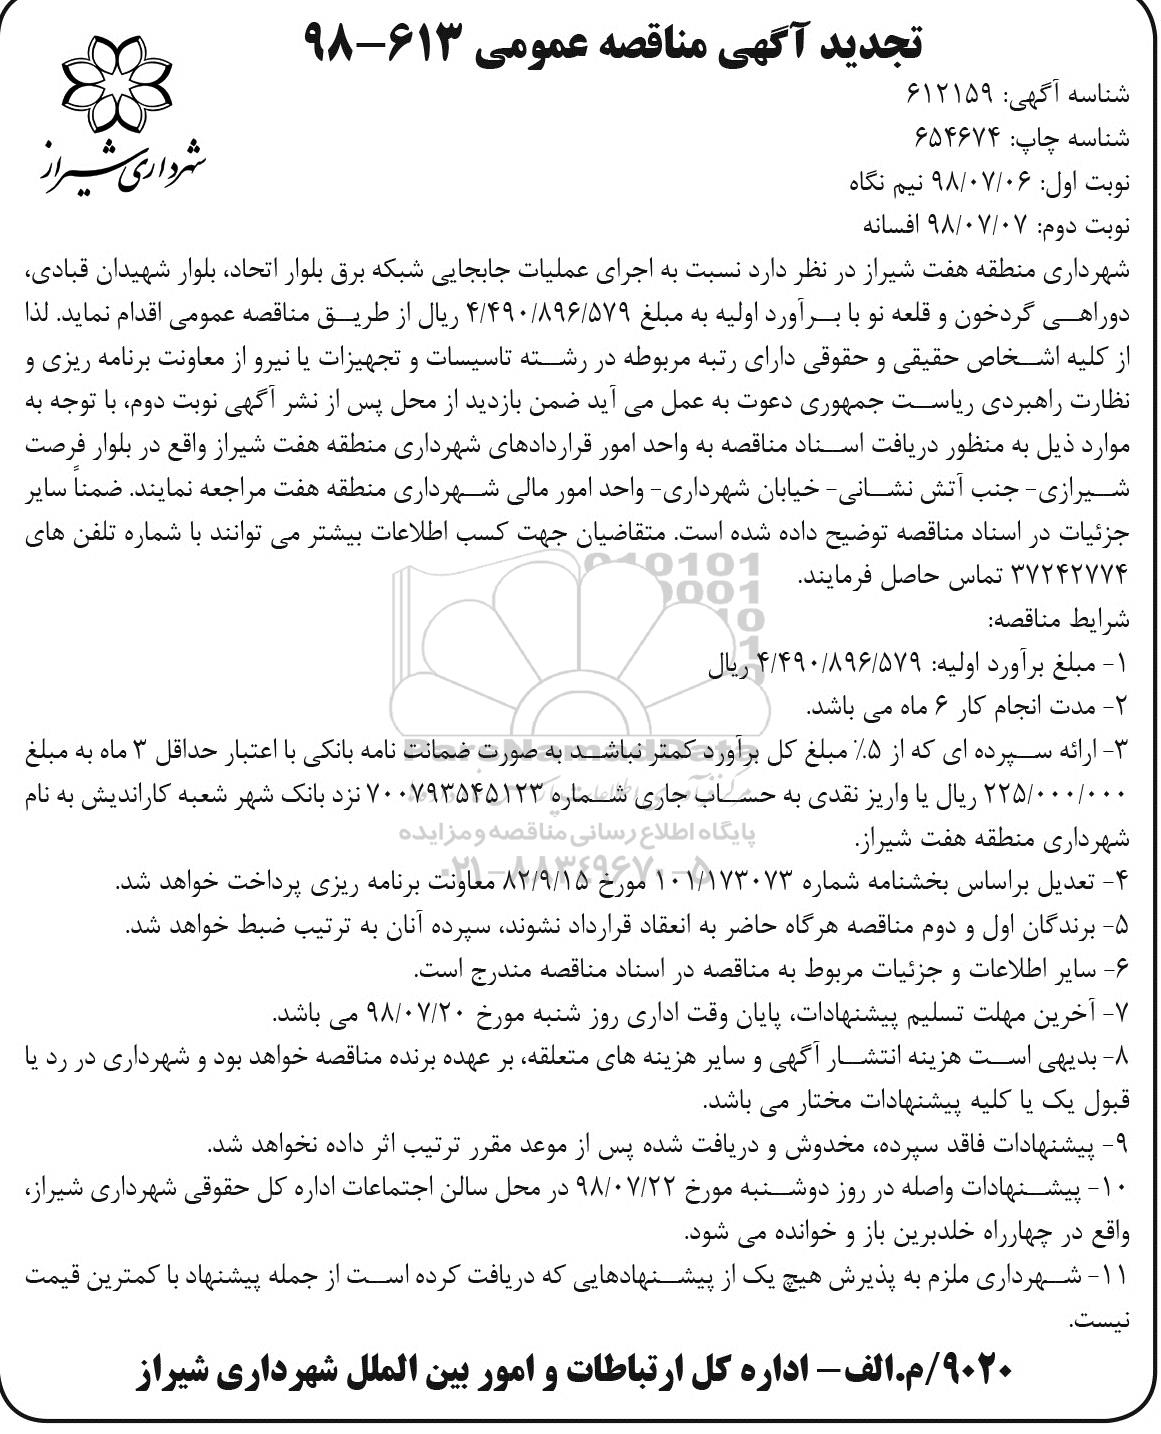 تجدید آگهی مناقصه عمومی ۶۱۳-۹۸
شهرداری شیراز
شناسه آگهی: ۶۱۲۱۵۹
شناسه چاپ: ۶۵۴۶۷۴
نوبت اول: ۹۸/۰۷/۰۶ نیم نگاه
نوبت دوم: ۹۸/۰۷/۰۷ افسانه
شهرداری منطقه هفت شیراز در نظر دارد نسبت به اجرای عملیات جابجایی شبکه برق بلوار اتحاد، بلوار شهیدان قبادی،
دوراهی گردخون و قلعه نو با برآورد اولیه به مبلغ ۴/۴۹۰/۸۹۶/۵۷۹ ریال از طریق مناقصه عمومی اقدام نماید. لذا
از کلیه اشخاص حقیقی و حقوقی دارای رتبه مربوطه در رشته تاسیسات و تجهیزات یا نیرو از معاونت برنامه ریزی و
نظارت راهبردی ریاست جمهوری دعوت به عمل می آید ضمن بازدید از محل پس از نشر آگهی نوبت دوم، با توجه به
موارد ذیل به منظور دریافت اسناد مناقصه به واحد امور قراردادهای شهرداری منطقه هفت شیراز واقع در بلوار فرصت
شیرازی- جنب آتش نشانی- خیابان شهرداری- واحد امور مالی شهرداری منطقه هفت مراجعه نمایند. ضمناً سایر
جزئیات در اسناد مناقصه توضیح داده شده است. متقاضیان جهت کسب اطلاعات بیشتر می توانند با شماره تلفن های
۳۷۲۴۲۷۷۴ تماس حاصل فرمایند.
شرایط مناقصه:
۱- مبلغ برآورد اولیه: ۴/۴۹۰/۸۹۶/۵۷۹ ریال
۲- مدت انجام کار ۶ ماه می باشد.
۳- ارائه سپرده ای که از ۵٪ مبلغ کل برآورد کمتر نباشد به صورت ضمانت نامه بانکی با اعتبار حداقل ۳ ماه به مبلغ
۲۲۵/۰۰۰/۰۰۰ ریال یا واریز نقدی به حساب جاری شماره ۷۰۰۷۹۳۵۴۵۱۲۳ نزد بانک شهر شعبه کاراندیش به نام
شهرداری منطقه هفت شیراز.
۴- تعدیل براساس بخشنامه شماره ۱۰۱/۱۷۳۰۷۳ مورخ ۸۲/۹/۱۵ معاونت برنامه ریزی پرداخت خواهد شد.
۵- برندگان اول و دوم مناقصه هرگاه حاضر به انعقاد قرارداد نشوند، سپرده آنان به ترتیب ضبط خواهد شد.
۶- سایر اطلاعات و جزئیات مربوط به مناقصه در اسناد مناقصه مندرج است.
۷- آخرین مهلت تسلیم پیشنهادات، پایان وقت اداری روز شنبه مورخ ۹۸/۰۷/۲۰ می باشد.
۸- بدیهی است هزینه انتشار آگهی و سایر هزینه های متعلقه، بر عهده برنده مناقصه خواهد بود و شهرداری در رد یا
قبول یک یا کلیه پیشنهادات مختار می باشد.
۹- پیشنهادات فاقد سپرده، مخدوش و دریافت شده پس از موعد مقرر ترتیب اثر داده نخواهد شد.
۱۰- پیشنهادات واصله در روز دوشنبه مورخ ۹۸/۰۷/۲۲ در محل سالن اجتماعات اداره کل حقوقی شهرداری شیراز،
واقع در چهارراه خلدبرین باز و خوانده می شود.
۱۱- شهرداری ملزم به پذیرش هیچ یک از پیشنهادهایی که دریافت کرده است از جمله پیشنهاد با کمترین قیمت
نیست.
۹۰۲۰/م.الف- اداره کل ارتباطات و امور بین الملل شهرداری شیراز
ParsNamadData
پایگاه اطلاع رسانی مناقصه و مزایده
۰۲۱-۸۸۳۴۹۶۷۰-۵